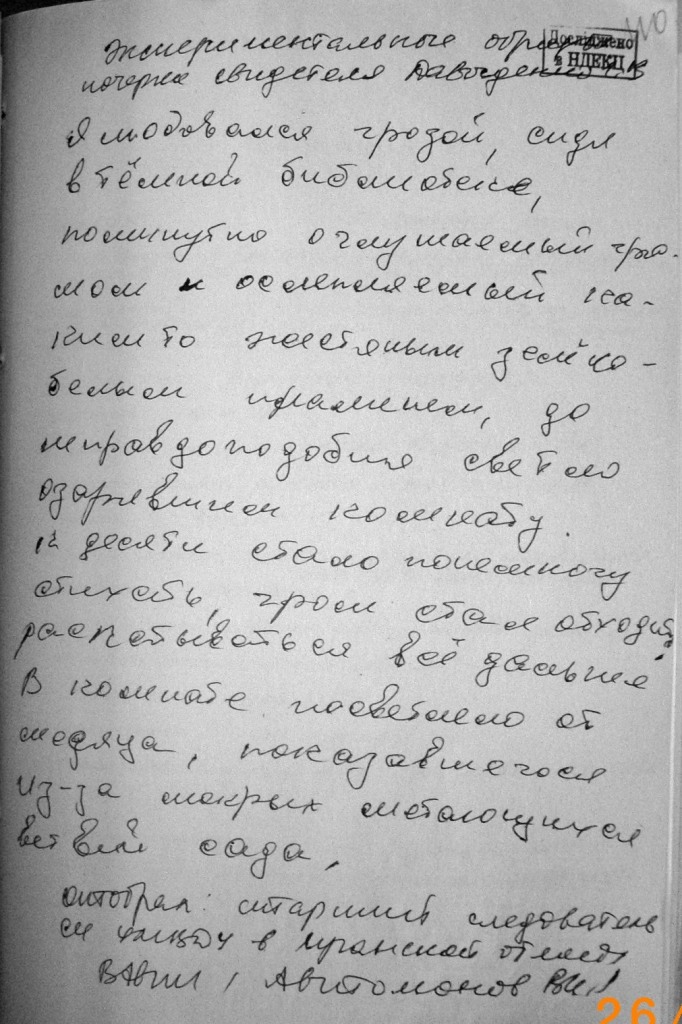 Экспериментальные образцы
почерка свидетеля Давыденко
Досліджено
в НДЕКЦ
Я любовался грозой, сидя
в тёмной библиотеке,
поминутно оглушаемый гро-
мом и ослепляемый ка-
ким то жестяным зелёно-
белым пламенем, до
неправдоподобия светло
озарявшим комнату.
К десяти стало понемногу
стихать, гром стал отходить
раскатываться всё дальше
В комнате посветлело от
месяца, показавшегося
из-за мокрых метающихся
ветвей сада,
отобрал: старший следователь
в Луганской области
Автомонов
26